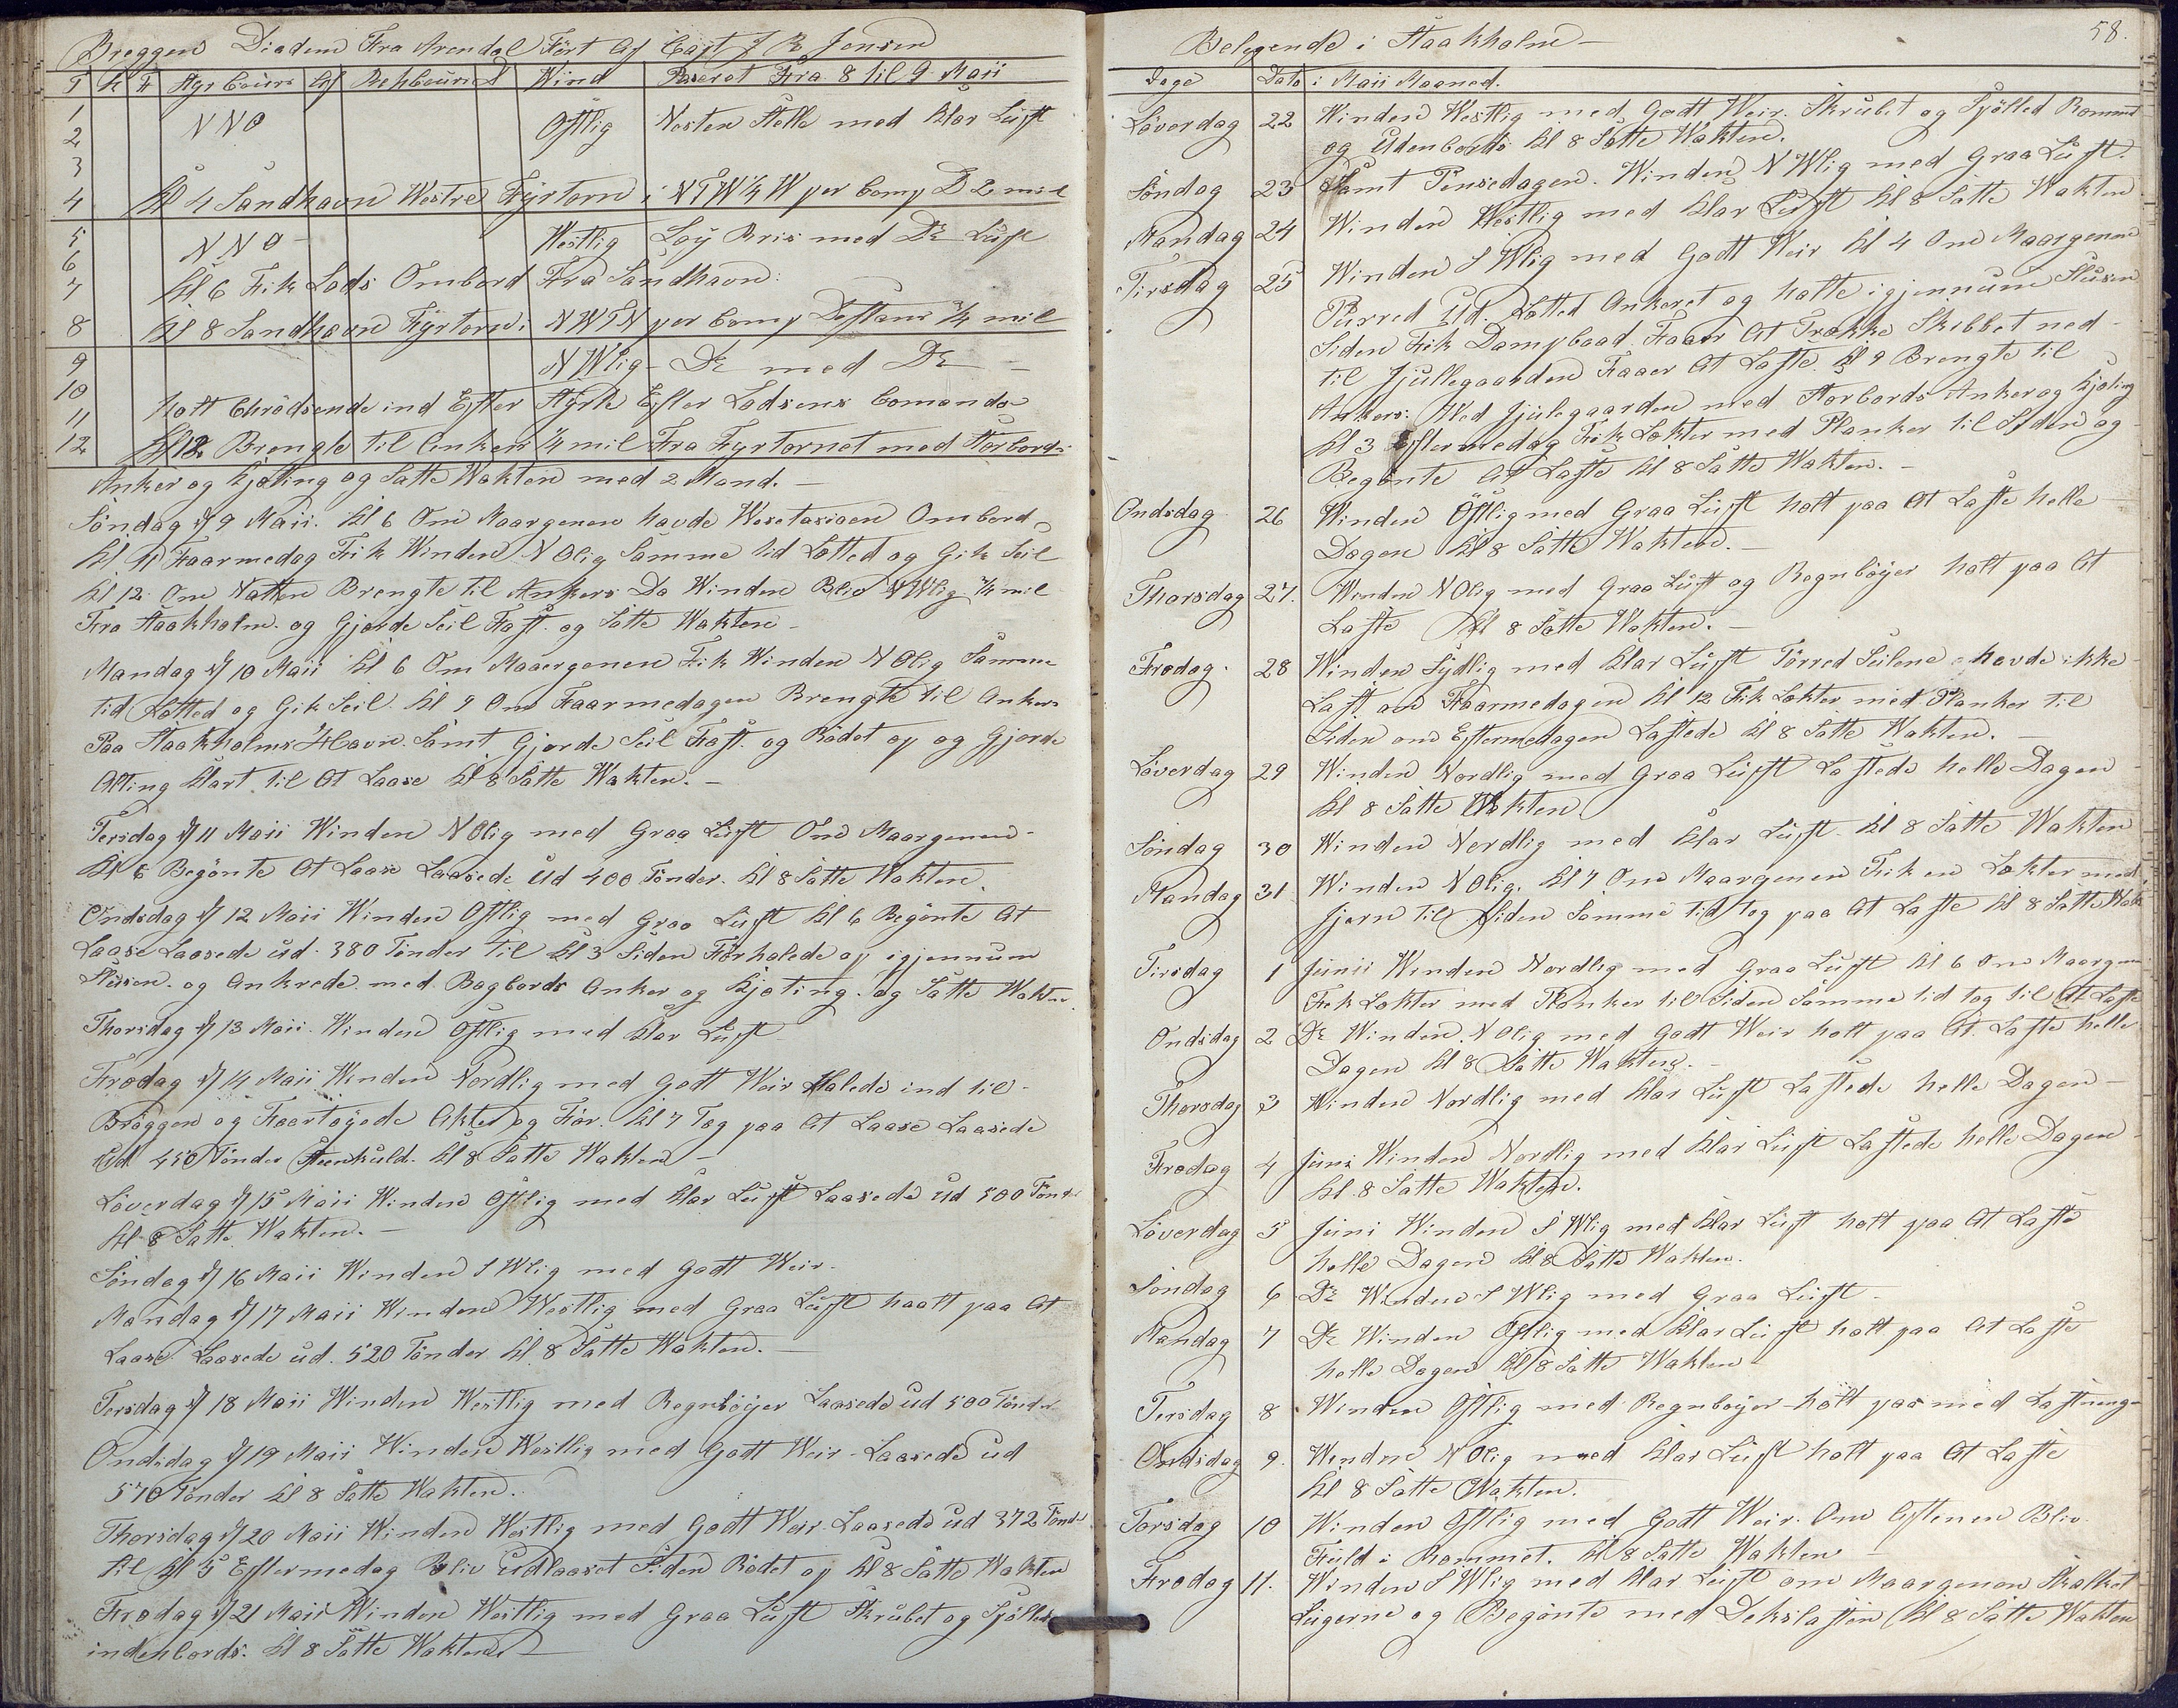 Breggen Diadem Fra Arendal Fört Af Capt J R Jensen
T K F Styr Cours Afd Rehbeured D Wind Paseret Fra 8 til 9 Maii
1 NNO Ostlig Nesten Stelle med Klar Luft
2
3
4 Kl 4 Sandhavn Westre Fyrtorn i NTW¼W per Comp D 2 mil
5 NNO Westlig Lay Bris med Do Luft
6
7 Kl 6 Fik Lods Ombord Fra Sandhavn
8 Kl 8 Sandhavn Fyrtorn i NWTN per Comp Distans ¼ mil
9 NWlig Do med Do
10
11 holt Chrödsende ind Efter Styrte Efter Lodsens Comando
12 Kl 12 Brengte til Ankers ¼ mil Fra Fyrtornet med Storbords
Anker og Kjæting og Satte Wakten med 2 Mand.
Söndag d 9 Maii. Kl 6 Om Maargenen havde Wesetasioen Ombord
Kl 11 Faarmedag Fik Winden NOlig Samme tid Lotted og Gik Seil
Kl 12 Om Natten Brengte til Ankers Da Winden Bliv NWlig ¼ mil
Fra Staakholm og Gjorde Seil Fast og Satte Wakten
Mandag d 10 Maii Kl 6 Om Maaergenen Fik Winden NOlig Samme
tid Lotted og Gik Seil. Kl 9 Om Faarmedagen Brengte til Ankers
Paa Staakholms Havn. Samt Gjorde Seil Fast og Rödet op og Gjorde
Alting Klart til At Laase Kl 8 Satte Wakten.
Tersdag d 11 Maii Winden NOlig med Graa Luft Om Maargenen
Kl 6 Begönte At Laase Laasede Ud 400 Tönder. Kl 8 Satte Wakten
Ondsdag d 12 Maii Winden Ostlig med Graa Luft Kl 6 Begönte At
Laase Laasede ud 380 Tönder til Kl 3 Siden Forhalede op igjennum
Slusen og Ankrede med Bagbords Anker og Kjæting og Satte Wakten
Thorsdag d 13 Maii Winden Ostlig med Klar Luft
Fredag d 14 Maii Winden Nordlig med Godt Weir Halede ind til
Bröggen og Faartöyede Akter og For. Kl 7 Tog paa At Laase Laasede
Ud 450 Tönder Steenkuld. Kl 8 Satte Wakten
Löverdag d 15 Maii Winden Ostlig med Klar Luft Laasede Ud 500 Tönder
Kl 8 Satte Wakten.
Söndag d 16 Maii Winden SWlig med Godt Weir
Mandag d 17 Maii Winden Westlig med Graa Luft haalt paa At
Laase Laasede ud 520 Tönder Kl 8 Satte Wakten.
Tersdag d 18 Maii Winden Westlig med Regnböyer Laasede ud 500 Tönder
Ondsdag d 19 Maii Winden Westlig med Godt Weir Laasede ud
570 Tönder Kl 8 Satte Wakten.
Thorsdag d 20 Maii Winden Westlig med Godt Weir Laasede ud 372 Tönder
til Kl 5 Eftermedag Bliv Udlaaset Siden Rödet op Kl 8 Satte Wakten
Fredag d 21 Maii Winden Westlig med Graa Luft Skrubet og Spölled
indenbords. Kl 8 Satte Wakten
58.
Belegende i Staakholm
Dage Dato i Maii Maaned.
Löverdag 22 Winden Westlig med Godt Weir. Skrubet og Spölled Rommet
og Udenbords Kl 8 Satte Wakten.
Söndag 23 Samt Pensedagen. Winden NWlig med Graa Luft.
Mandag 24 Winden Westlig med Klar Luft Kl 8 Satte Wakten
Tirsdag 25 Winden SWlig med Godt Weir Kl 4 Om Maargenen
Purred Ud. Lotted Ankeret og holte igjennum Slusen
Siden Fik Dampbaad Faar At Trække Skibbet ned
til Jullegaarden Faaer At Laste. Kl 9 Brengte til
Ankers. Wed Julegaarden med Storbords Anker og Kjæting
Kl 3 Eftermedag Fik Lokter med Planker til Siden og
Begönte At Laste Kl 8 Satte Wakten.
Ondsdag 26 Winden Östlig med Graa Luft holt paa At Laste helle
Dagen Kl 8 Satte Wakten.
Thorsdag 27. Winden NOlig med Graa Luft og Regnböyer holt paa At
Laste Kl 8 Satte Wakten.
Fredag 28 Winden Sydlig med Klar Luft Törred Seilene havde ikke
Last om Faarmedagen Kl 12 Fik Lokter med Planker til
Siden om Eftermedagen Lastede Kl 8 Satte Wakten.
Löverdag 29 Winden Nordlig med Graa Luft Lastede helle Dagen
Kl 8 Satte Wakten
Söndag 30 Winden Nordlig med Klar Luft. Kl 8 Satte Wakten
Mandag 31 Winden NOlig. Kl 7 Om Maargenen Fik en Lokter med
Jern til Siden Samme tid tog paa At Laste Kl 8 Satte Wak
Tirsdag 1 Junii Winden Nordlig med Graa Luft Kl 6 Om Maargen
Fik Lokter med Planker til Siden Samme tid tog til At Laste
Ondsdag 2 Do Winden NOlig med Godt Weir holt paa At Laste helle
Dagen Kl 8 Satte Wakten.
Thorsdag 3 Winden Nordlig med Klar Luft Lastede helle Dagen
Fredag 4 Juni Winden Nordlig med Klar Luft Lastede helle Dagen
Kl 8 Satte Wakten.
Löverdag 5 Juni Winden SWlig med Klar Luft holt paa At Laste
helle Dagen Kl 8 Satte Wakten.
Söndag 6 Do Winden SWlig med Graa Luft
Mandag 7 Do Winden Ostlig med Klar Luft holt paa At Laste
helle Dagen Kl 8 Satte Wakten
Tersdag 8 Winden Ostlig med Regnböyer holt paa med Lastninge
Ondsdag 9. Winden NOlig med Klar Luft holt paa At Laste
Kl 8 Satte Wakten.
Torsdag 10 Winden Ostlig med Godt Weir. Om Aftenen Bliv
Fuld i Rommet. Kl 8 Satte Wakten
Fredag 11. Winden SWlig med Klar Luft om Maargenen Skalket
Lugerne og Begönte med Dekslasten Kl 8 Satte Wakten